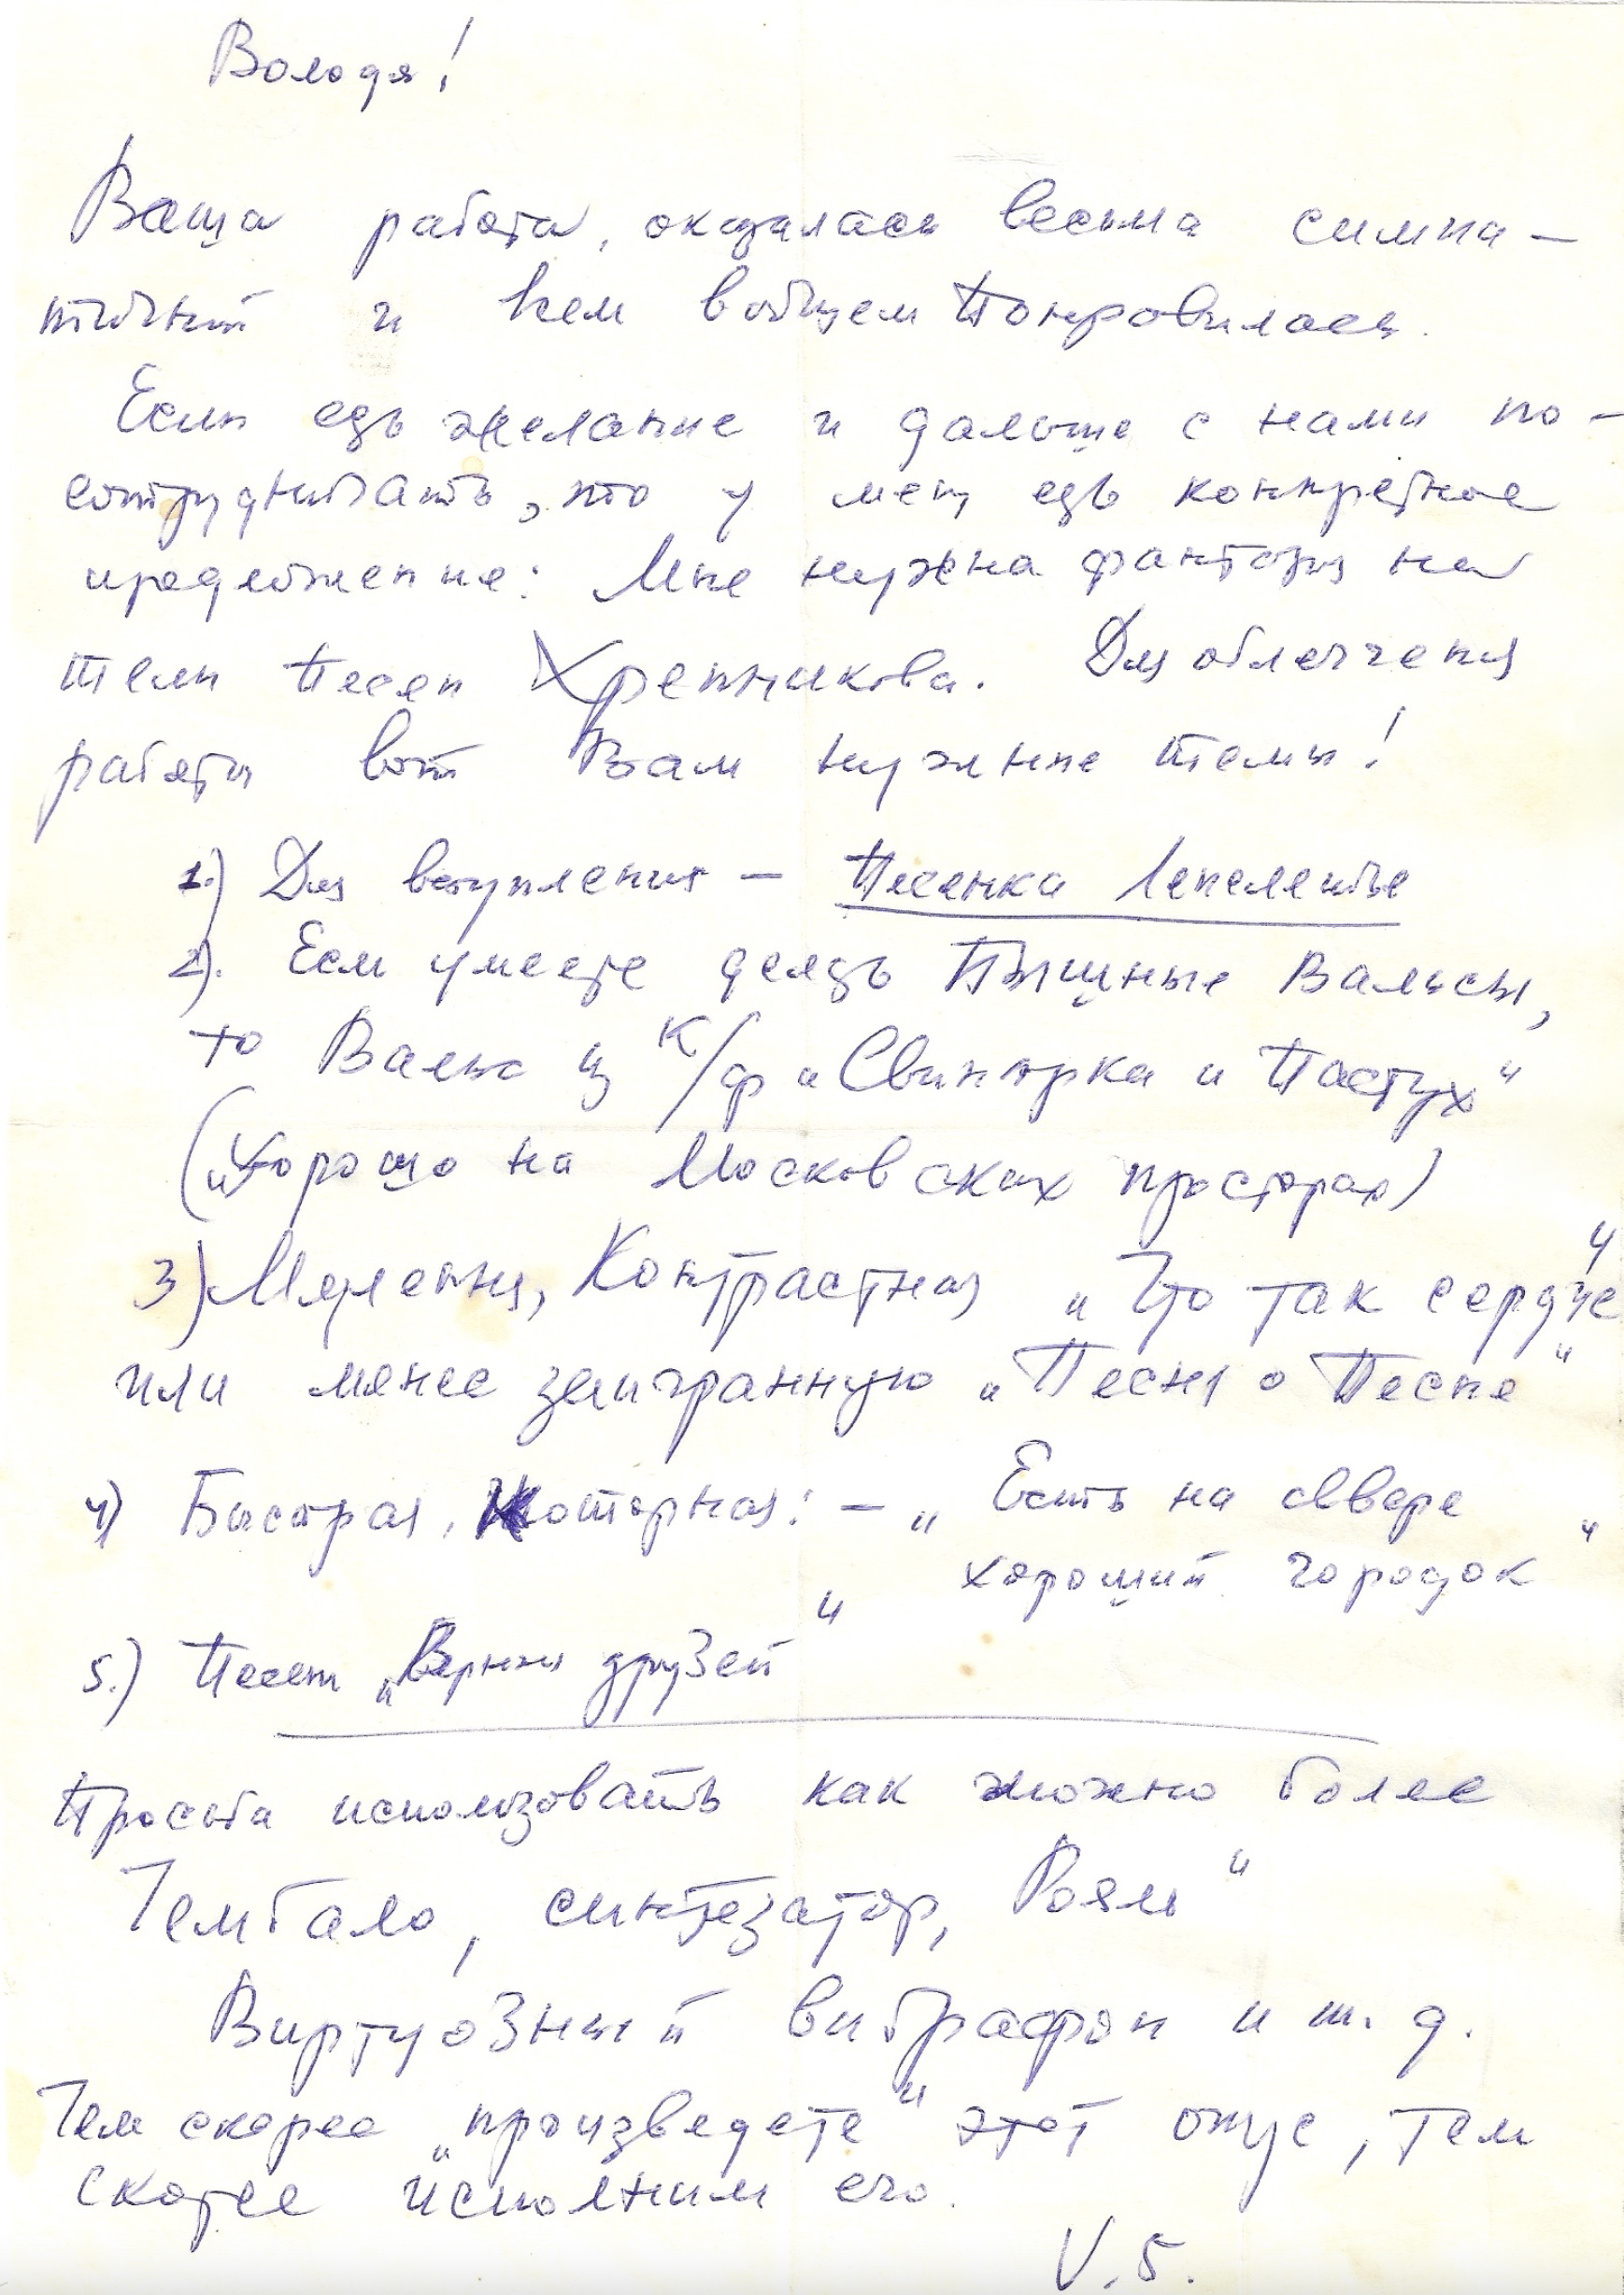 Володя!
Ваша работа, оказалась весьма симпа-
тичной и всем вобщем понравилась.
Если есть желание и дальше с нами по-
сотрудничать, то у меня есть конкретное
предложение: Мне нужна фантазия на
темы песен Хренникова. Для облегчения
работы вот Вам нужные темы!
1.) Для вступления – Песенка Лепелетье
2). Если умеете делать Пышные Вальсы,
то Вальс из к/ф „Свинарка и Пастух"
(„Хорошо на Московских просторах)
3) Медленная, Контрастная „Что так сердце"
или менее заигранную „Песня о Песне"
4) Быстрая, моторная: – „Есть на севере
хороший городок"
5.) Песеня „Верных друзей"
Просьба использовать как можно более
Чембало, синтезатор, Рояль"
Виртуозный вибрафон и т. д.
Чем скорее „произведете" этот опус, тем
скорее исполним его.
V. Б.